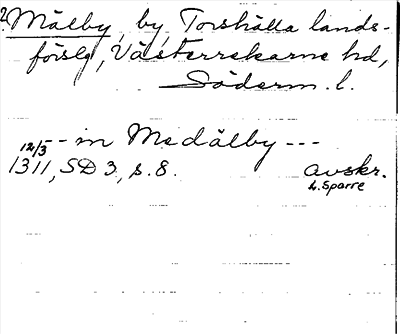 ? Mälby by, Torshälla lands-
förslg, Västerrekarne hd,
Söderm. l.
12/3 -- in Medälby ---
1311, SD 3, s. 8. avskr.
L. Sparre